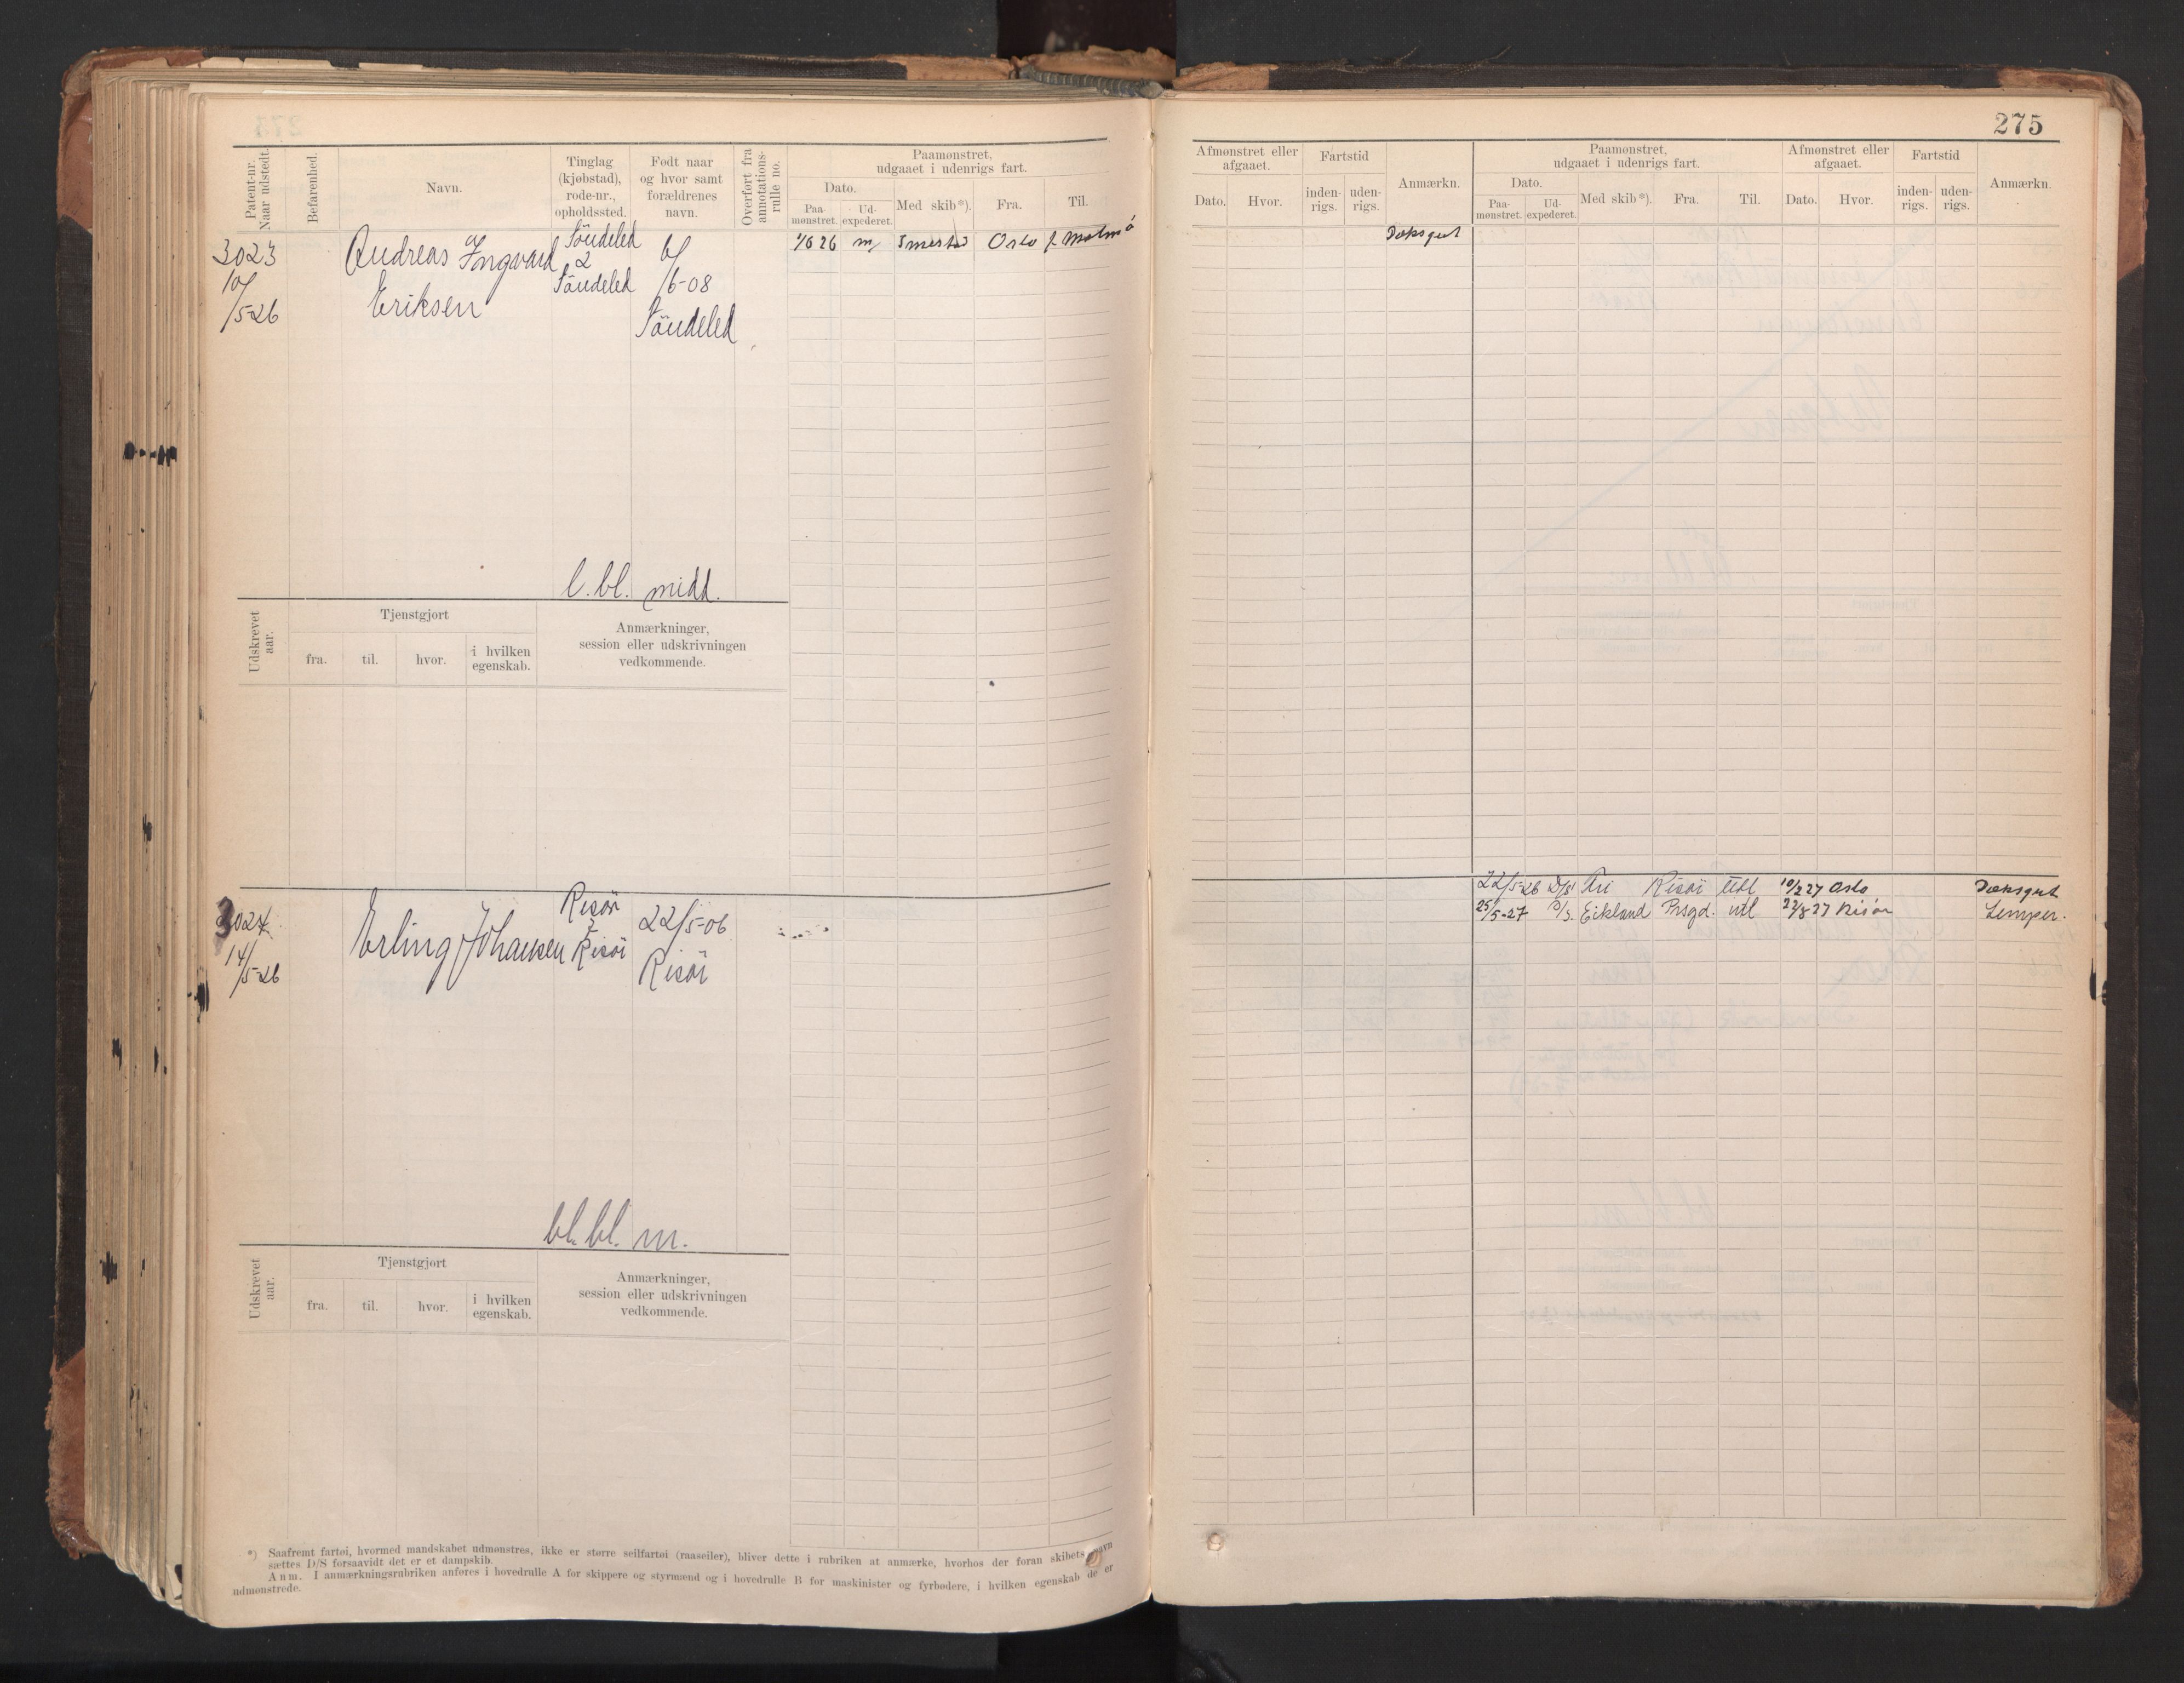 275
Patent-nr. Naar udstedt.
Befarenhed.
Navn.
Tinglag (kjøbstad), rode-nr., opholdssted.
Født naar og hvor samt forældrenes navn.
Overført fra annotations-rulle no.
Paamønstret, udgaaet i udenrigs fart.
Dato.
Paa-mønstret.
Ud-expederet.
Med skib*).
Fra.
Til.
Afmønstret eller afgaaet.
Dato.
Hvor.
Fartstid
inden-rigs.
uden-rigs.
Anmærkn.
Paamønstret, udgaaet i udenrigs fart.
Dato.
Paa-mønstret.
Ud-expederet.
Med skib*).
Fra.
Til.
Afmønstret eller afgaaet.
Dato.
Hvor.
Fartstid
inden-rigs.
uden-rigs.
Anmærkn.
3023
10/5-26
Andreas Ingvard
Eriksen
Söndeled
2
Söndeled
6/6-08
Söndeled
1/6 26 m/ Smestad Oslo f. Malmö
Dæksgut
l. bl. midd.
Udskrevet aar.
Tjenstgjort
fra.
til.
hvor.
i hvilken egenskab.
Anmærkninger,
session eller udskrivningen
vedkommende.
3024
14/5-26
Erling Johansen
Risör
Risör
22/5-06
Risör
22/5-26 D/S Risör Utl 10/2 27 Oslo Dæksgut
25/5-27 D/S. Eikland Prsgd. utl 22/8 27 Risör Lemper.
bl. bl. m.
Udskrevet aar.
Tjenstgjort
fra.
til.
hvor.
i hvilken egenskab.
Anmærkninger,
session eller udskrivningen
vedkommende.
*) Saafremt fartøi, hvormed mandskabet udmønstres, ikke er større seilfartøi (raaseiler), bliver dette i rubriken at anmærke, hvorhos der foran skibets navn
sættes D/S forsaavidt det er et dampskib.
Anm. I anmærkningsrubriken anføres i hovedrulle A for skippere og styrmænd og i hovedrulle B for maskinister og fyrbødere, i hvilken egenskab de er
udmønstrede.